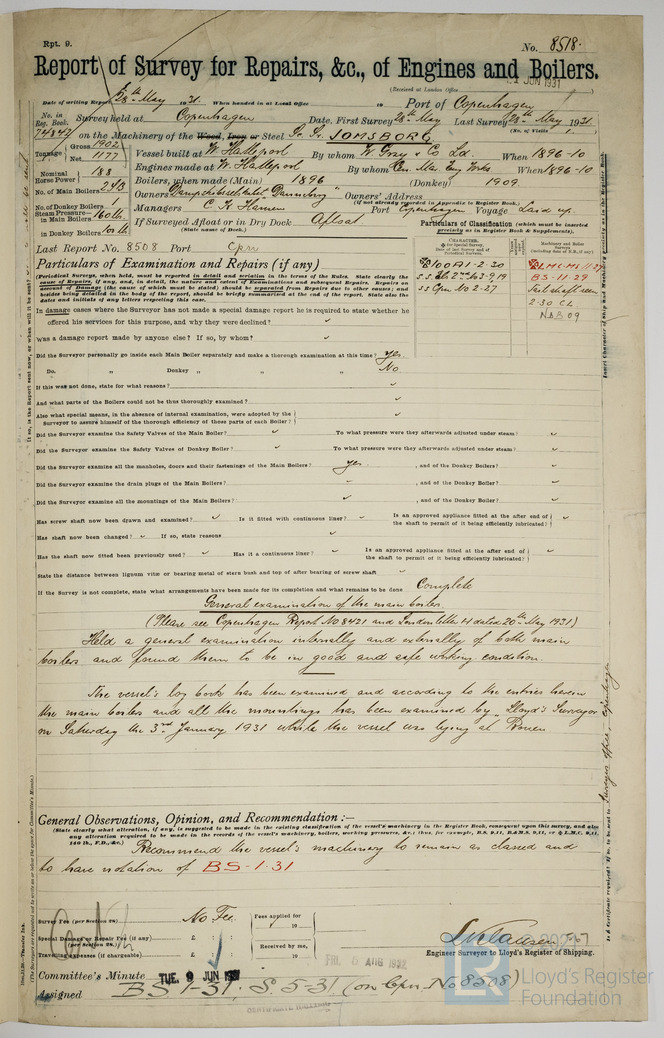 Rpt. 9.
No. 8518.
Report of Survey for Repairs, &c., of Engines and Boilers.
(Received at London Office 1 JUN 1931
Date of writing Report 28th May 1931. When handed in at Local Office 19 Port of Copenhagen
No. in Reg. Book. Survey held at Copenhagen Date, First Survey 28th May Last Survey 28th May 1931
(No. of Visits 1.)
74842 on the Machinery of the Wood, Iron or Steel JOMSBORG
Tonnage Gross 1902 Net 1177
Vessel built at W. Hartlepool By whom W. Gray & Co Ld. When 1896-10
Engines made at W. Hartlepool By whom Cen. Mar. Eng. Wks When 1896-10
Nominal Horse Power 188
Boilers, when made (Main) 1896 (Donkey) 1909
No. of Main Boilers 2SB
Owners Owners' Address
(if not already recorded in Appendix to Register Book.)
No. of Donkey Boilers 1
Managers C. K. Hansen Port Copenhagen Voyage Laid up.
Steam Pressure in Main Boilers 160 lb.
in Donkey Boilers 100 lb
If Surveyed Afloat or in Dry Dock Afloat.
(State name of Dock.)
Particulars of Classification (which must be inserted precisely as in Register Book & Supplements).
Last Report No. 8508 Port Cpn
Particulars of Examination and Repairs (if any)
100A1-2-30
S.S. Cpn No 2-27
LMC
BS-11-29
Tail shaft seen
2-30 CL
NDB 09
In damage cases where the Surveyor has not made a special damage report he is required to state whether he
offered his services for this purpose, and why they were declined?
Was a damage report made by anyone else? If so, by whom?
Did the Surveyor personally go inside each Main Boiler separately and make a thorough examination at this time? yes.
Do. " Donkey " " " No
If this was not done, state for what reasons?
And what parts of the Boilers could not be thus thoroughly examined?
Also what special means, in the absence of internal examination, were adopted by the Surveyor to assure himself of the thorough efficiency of those parts of each Boiler?
Did the Surveyor examine the Safety Valves of the Main Boiler? To what pressure were they afterwards adjusted under steam?
Did the Surveyor examine the Safety Valves of Donkey Boiler? To what pressure were they afterwards adjusted under steam?
Did the Surveyor examine all the manholes, doors and their fastenings of the Main Boilers? yes. , and of the Donkey Boilers?
Did the Surveyor examine the drain plugs of the Main Boilers? , and of the Donkey Boilers?
Did the Surveyor examine all the mountings of the Main Boilers? , and of the Donkey Boilers?
Has screw shaft now been drawn and examined? Is it fitted with continuous liner? Is an approved appliance fitted at the after end of the shaft to permit of it being efficiently lubricated?
Has shaft now been changed? If so, state reasons
Has the shaft now fitted been previously used? Has it a continuous liner? Is an approved appliance fitted at the after end of the shaft to permit of it being efficiently lubricated?
State the distance between lignum vitæ or bearing metal of stern bush and top of after bearing of screw shaft
If the Survey is not complete, state what arrangements have been made for its completion and what remains to be done Complete
General examination of the main boilers.
(Please see Copenhagen Report No 8421 and London letter H dated 20th May 1931)
Held a general examination internally and externally of both main
boilers and found them to be in good and safe working condition.
The vessel's log book has been examined and according to the entries herein
the main boilers and all the mountings has been examined by "Lloyd's Surveyor"
on Saturday the 3rd January 1931 while the vessel was lying at Rouen
General Observations, Opinion, and Recommendation:—
(State clearly what alteration, if any, is suggested to be made in the existing classification of the vessel's machinery in the Register Book, consequent upon this survey, and also any alteration required to be made in the records of the vessel's machinery, boilers, working pressures, &c.; thus, for example, B.S. 9,11, B.&M.S. 9,11, or L.M.C. 9,11, 140 lb., F.D., &c.)
Recommend the vessel's machinery to remain as classed and
to have notation of BS-1-31
Survey Fee (per Section 28) No Fee Fees applied for 19
Special Damage or Repair Fee (if any) (per Section 28.) £ : :
Travelling expenses (if chargeable) £ : : Received by me, 19
Engineer Surveyor to Lloyd's Register of Shipping.
Committee's Minute TUE. 9 JUN 1931
FRI. 6 AUG 1932
Assigned BS 1-31, S. 5-31 (on Cpn No 8508)
Lloyd's Register
Foundation